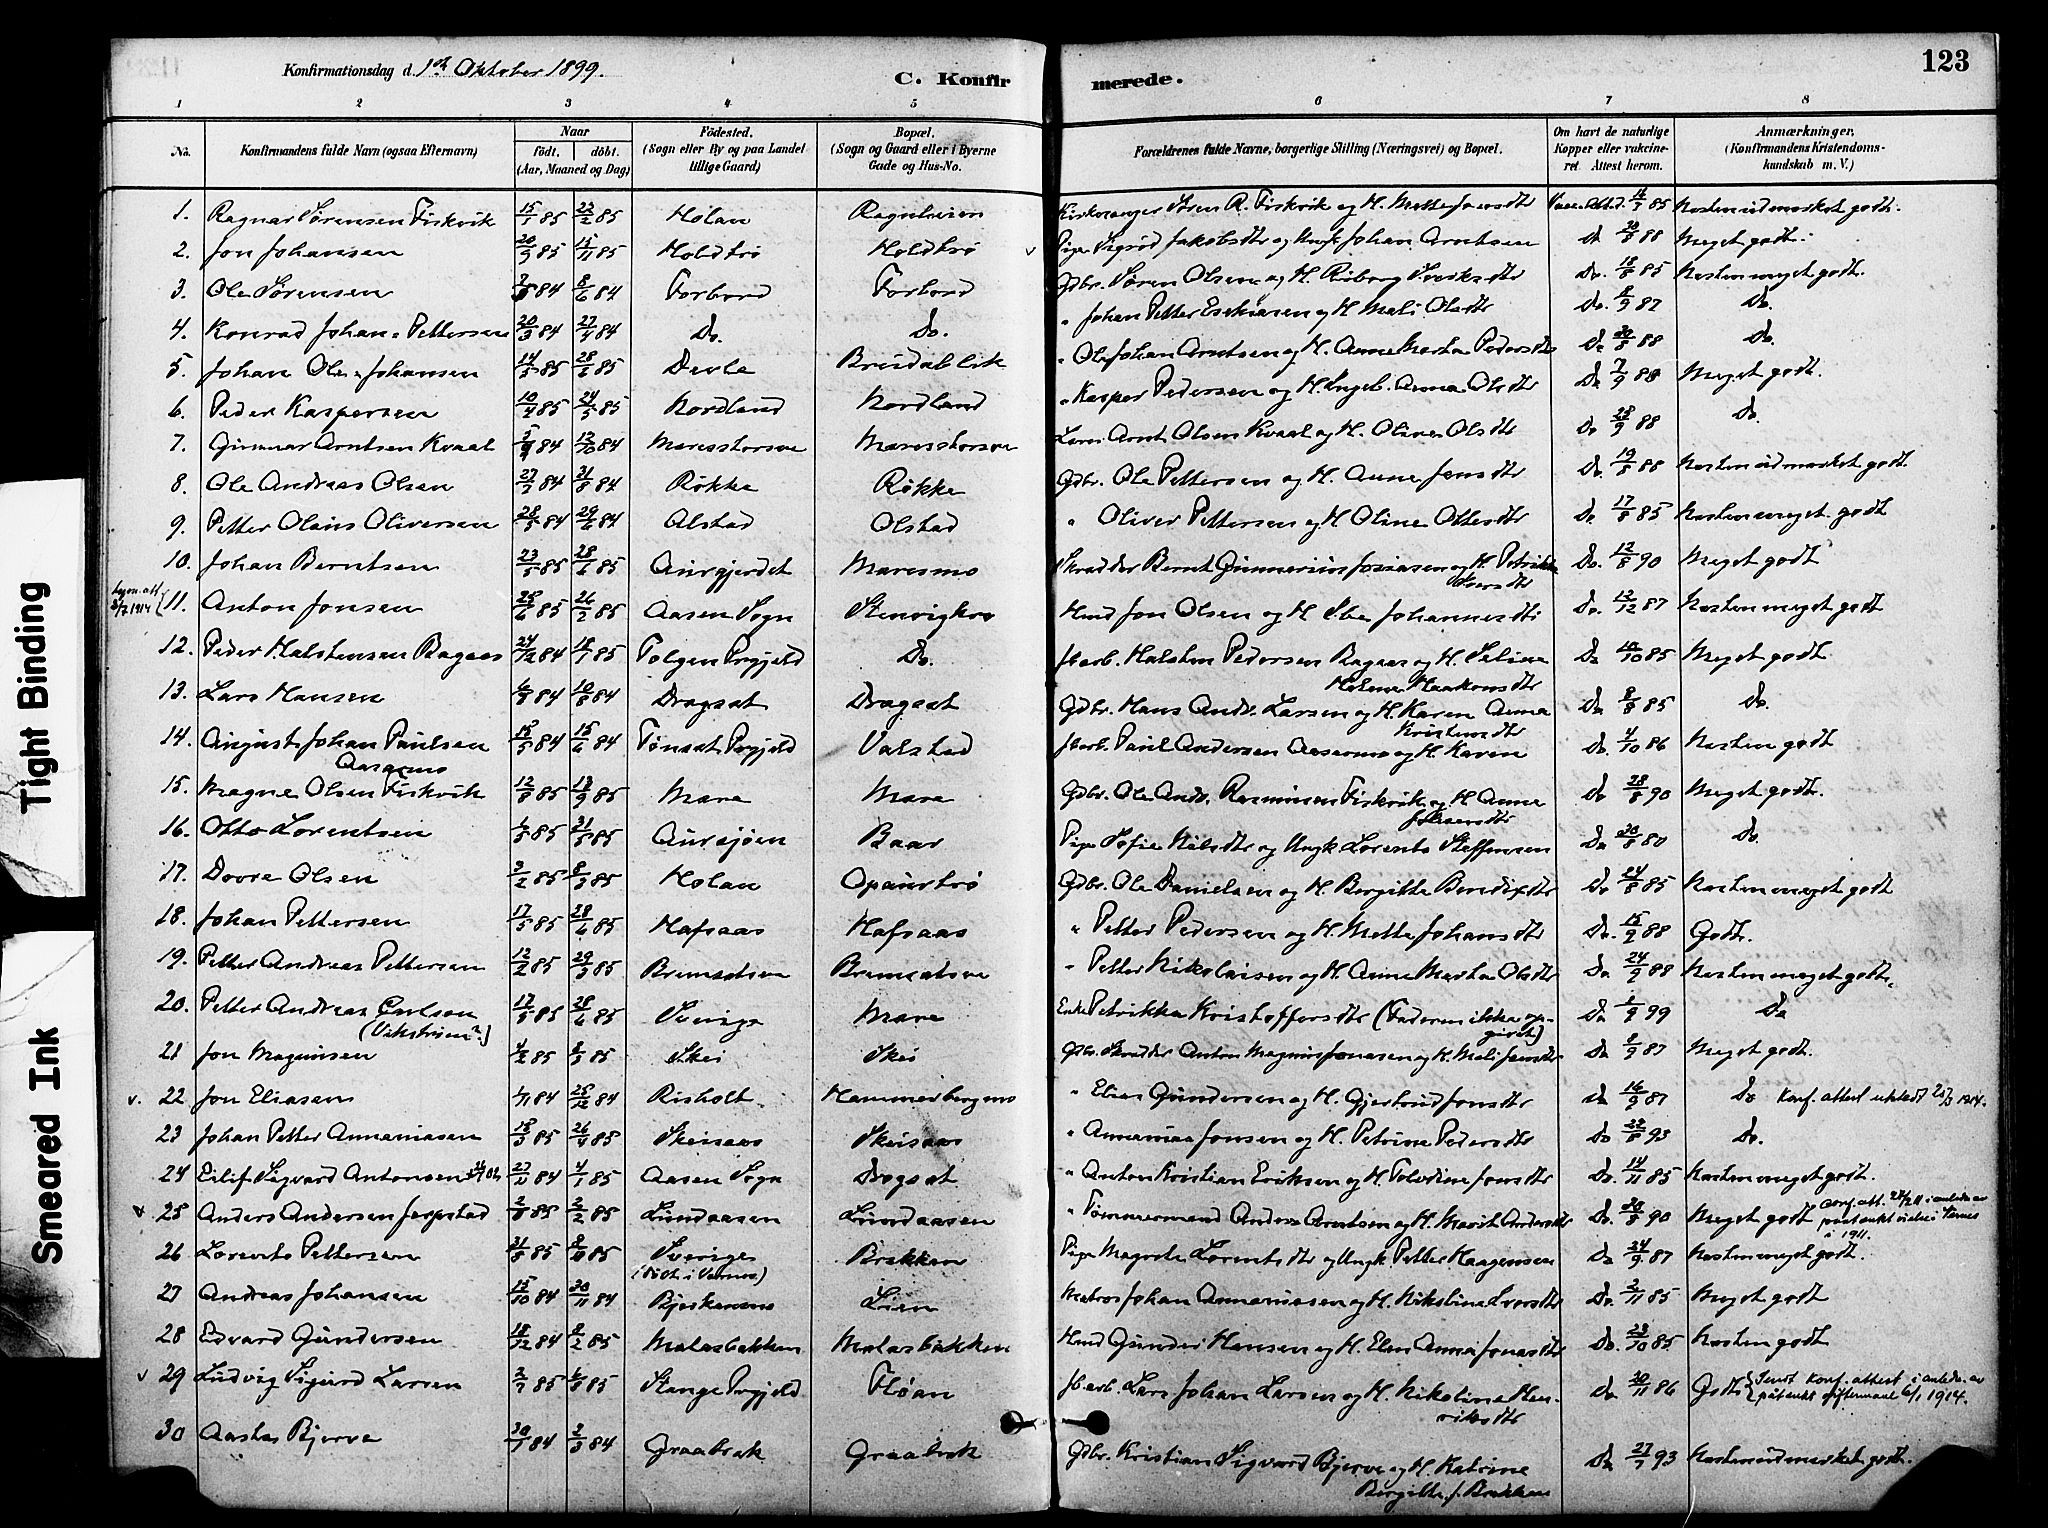 Konfirmationsdag d. 1ste Oktober 1899.
C. Konfirmerede.
123
1 2 3 4 5 6 7 8
No. | Konfirmandens fulde Navn (ogsaa Efternavn) | Naar født. døbt. (Aar, Maaned og Dag) | Fødested. (Sogn eller By og paa Landet tillige Gaard) | Bopæl. (Sogn og Gaard eller i Byerne Gade og Hus-No. | Forældrenes fulde Navne, borgerlige Stilling (Næringsvei) og Bopæl. | Om havt de naturlige Kopper eller vaccineret Attest herom. | Anmærkninger, (Konfirmandens Kristendomskundskab m. V.)
1. Ragnar Sørensen Fiskvik 15/1 85 22/2 85 Holan Kirkesanger Søren R. Fiskvik og H. Mette Jonsdtr 85 Næsten udmærket godt.
2. Jon Johansen 20/9 85 15/11 85 Holdtrø Holdtrø Pige Sigrød Jakobsdtr og Ungk. Johan Arntsen Do 20/8 88 Meget godt.
3. Ole Sørensen 84 8/6 84 Forbord Forbord Gdbr. Søren Olsen og H. Do. 18/8 85 Næsten meget godt.
4. Konrad Johan Pettersen 20/3 84 27/4 84 Do. Do. " Johan Petter Esekiasen og H. Mali Olsdtr Do. 8/9 87 Do.
5. Johan Ole Johansen 14/5 85 28/6 85 Devle Breidablik " Ole Johan Arntsen og H. Anne Marta Pedersdtr Do 20/8 88 Do.
6. Peder Kaspersen 10/4 85 24/5 85 Nordland Nordland " Kasper Pedersen og H. Ingeb. Anna Olsdtr Do 7/9 88 Meget godt.
7. Gunnar Arntsen Kvaal 84 12/10 84 Arnt Olsen Kvaal og H. Oline Olsdtr Do 28/9 88 Do.
8. Ole Andreas Olsen 27/7 84 31/8 84 Røkke Røkke Gdbr. Ole Pettersen og H. Anne Jensdtr Do. 19/8 88 Næsten udmærket godt.
9. Petter Olaus Oliversen 28/5 84 29/6 84 Alstad Olstad " Oliver Pettersen og H Oline Ottersdtr Do. 17/8 85 Næsten meget godt
10. Johan Berntsen 23/5 85 28/6 85 Aurgjerdet Maresmo Skrædder Bernt Gunnerius Jonasen og H. Petrikke Do. 12/8 90 Meget godt
11. Anton Jonsen 85 26/2 85 Aasen Sogn Stenvigkro Hmd Jon Olsen og H Johannesdtr Do. 12/12 87 Næsten meget godt
12. Peder Halstensen Bagaas 24/12 84 18/1 85 Tolgen Prgjeld Do. Jb.arb. Halsten Pedersen Bagaas og H. Seline
Helene Haakonsdtr Do 10/10 85 Meget godt
13. Lars Hansen 6/7 84 10/8 84 Dragsat Dragsat Gdbr. Hans Andr. Larsen og H. Karen Anna
Kristensdtr Do 8/8 85 Do.
14. August Johan Paulsen
Aasarmo 15/5 84 15/6 84 Tønset Prgjeld Valstad Jb.arb. Paul Andersen Aasarmo og H. Karen Do. 4/10 86 Næsten godt
15. Magne Olsen Fiskvik 12/8 85 13/9 85 Mære Mære Gdbr. Ole Andr. Rasmusen Fiskvik og H Anna
Johnsdtr Do 28/8 90 Meget godt.
16. Otto Lorentsen 1/5 85 31/5 85 Aursjøen Baar Pige Sofie Nilsdtr og Ungk. Lorents Steffensen Do 20/8 80 Do.
17. Dovre Olsen 2/2 85 8/3 85 Holan Opaurtrø Gdbr. Ole Danielsen og H. Birgitte Bendixdtr Do 24/8 85 Næsten meget godt
18. Johan Pettersen 17/5 85 28/6 85 Hafsaas Hafsaas " Petter Pedersen og H. Mette Johansdtr Do. 15/9 88 Godt.
19. Petter Andreas Pettersen 12/2 85 29/3 85 " Petter Nikolaisen og H. Anne Marta Olsdtr Do 24/9 88 Næsten meget godt.
20. Petter Andreas Carlson
(Vikstrøm?) 17/5 85 28/6 85 Sverige Mære Enke Petrikka Kristoffersdtr (Faderen ikke op-
givet) Do 1/9 99 Do
21 Jon Magnusen 1/2 85 8/3 85 Skei Skei Gdbr. Skrædder Anton Magnus Jonasen og H. Mali Jonsdtr Do 8/9 87 Meget godt.
v. 22 Jon Eliasen 1/11 84 25/12 84 Risholt Hammerbergmo " Elias Gundersen og H. Gjertrud Jonsdtr Do 16/9 87 Do Konf. attest utstedt 1914.
23 Johan Petter Annaniasen 18/3 85 26/4 85 Skeisaas Skeisaas " Annanias Jonsen og H. Petrine Pedersdtr Do 22/8 93 Do.
24 Eilif Sigvard Antonsen 27/11 84 4/1 85 Aasen Sogn Dragsat " Anton Kristian Eriksen og H. Jonsdtr Do. 14/11 85 Næsten meget godt.
v 25 Anders Andersen Jørpstad 85 85 Lundaasen Lundaasen " Tømmermand Anders Arntsen og H. Marit Andersdtr Do. 20/8 90 Meget godt
i 1911.
26 Lorents Pettersen 31/8 85 85 Sverige
(Født i Værnes) Brækken Pige Magrete Lorentsdtr og Ungk Petter Haagensen Do 24/9 87 Næsten meget godt.
27 Andreas Johansen 15/10 84 30/11 84 Lien Matros Johan Annaniasen og H. Nikoline Do. 2/11 85 Meget godt
28 Edvard Gundersen 18/12 84 8/2 85 Malasbakken Malasbakken Hmd Gunder Hansen og H. Elen Anna Jonasdtr Do. 23/10 85 Næsten godt
v 29 Ludvig Sigurd Larsen 85 85 Stange Prgjeld Fløan Jb.arb. Lars Johan Larsen og H. Nikoline Hen-
riksdtr Do 20/11 86 Godt Sendt Konf. attest i anledn. av
påtænkt giftermaal 6/1 1914.
30 Aasta Bjerve 84 2/3 84 Graabræk Graabræk Gdbr. Kristian Sigvard Bjerve og H. Katrine
Birgitte f. Brækken Do 27/7 93 Næsten udmærket godt.
Tight Binding
Smeared Ink